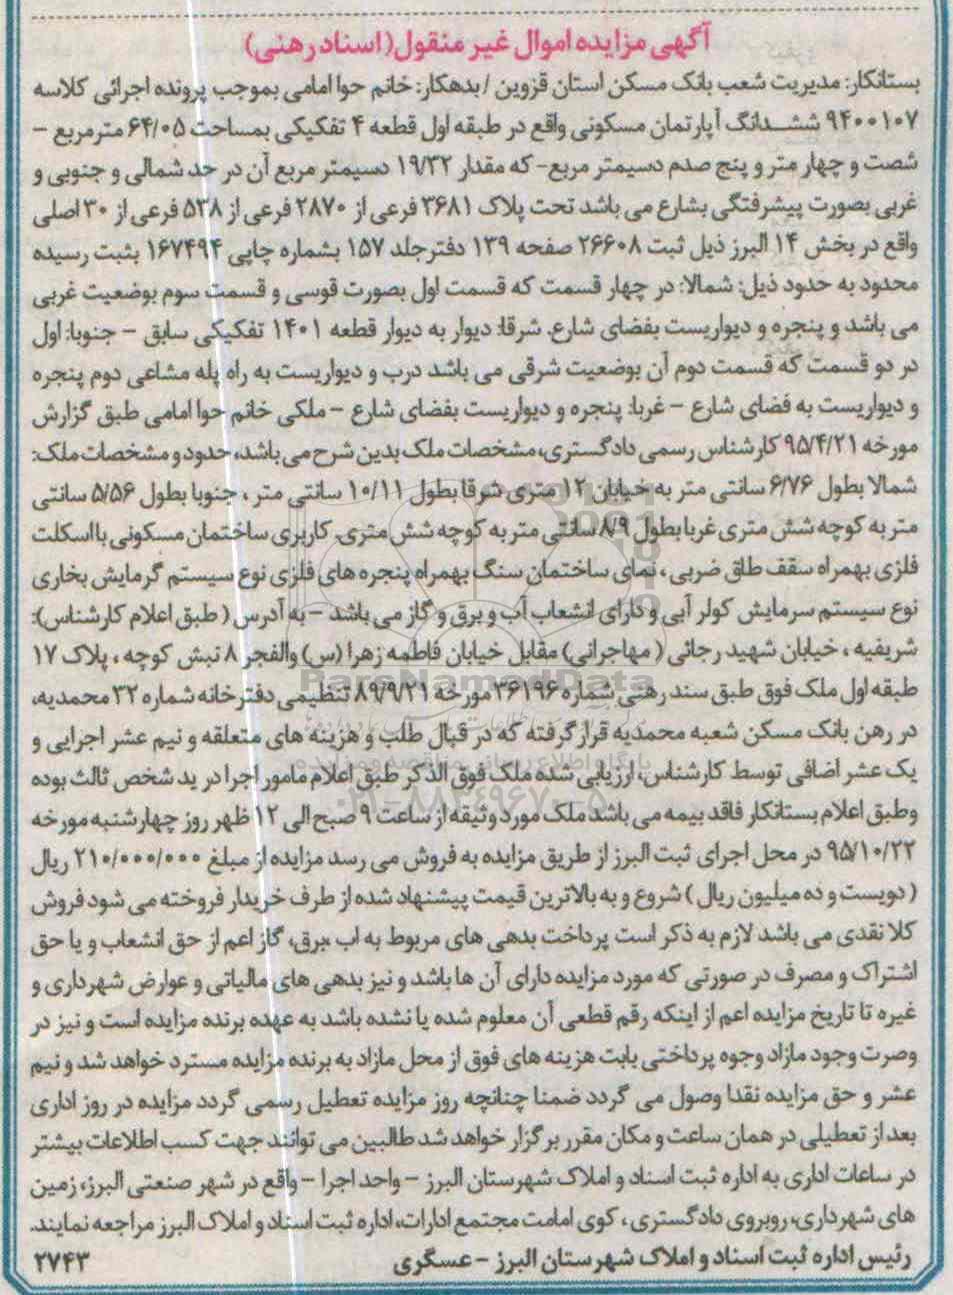 آگهی مزایده اموال غیر منقول(اسناد رهنی)
بستانکار: مدیریت شعب بانک مسکن استان قزوین / بدهکار: خانم حوا امامی بموجب پرونده اجرائی کلاسه
۹۴۰۰۱۰۷ ششدانگ آپارتمان مسکونی واقع در طبقه اول قطعه ۴ تفکیکی بمساحت ۶۴/۰۵ مترمربع –
شصت و چهار متر و پنج صدم دسیمتر مربع- که مقدار ۱۹/۳۲ دسیمتر مربع آن در حد شمالی و جنوبی و
غربی بصورت پیشرفتگی بشارع می باشد تحت پلاک ۳۶۸۱ فرعی از ۲۸۷۰ فرعی از ۵۳۸ فرعی از ۳۰ اصلی
واقع در بخش ۱۴ البرز ذیل ثبت ۲۶۶۰۸ صفحه ۱۳۹ دفترجلد ۱۵۷ بشماره چاپی ۱۶۷۴۹۴ بثبت رسیده
محدود به حدود ذیل: شمالا: در چهار قسمت که قسمت اول بصورت قوسی و قسمت سوم بوضعیت غربی
می باشد و پنجره و دیواریست بفضای شارع. شرقا: دیوار به دیوار قطعه ۱۴۰۱ تفکیکی سابق – جنوبا: اول
در دو قسمت که قسمت دوم آن بوضعیت شرقی می باشد درب و دیواریست به راه پله مشاعی دوم پنجره
و دیواریست به فضای شارع – غربا: پنجره و دیواریست بفضای شارع – ملکی خانم حوا امامی طبق گزارش
مورخه ۹۵/۴/۲۱ کارشناس رسمی دادگستری، مشخصات ملک بدین شرح می باشد، حدود و مشخصات ملک:
شمالا بطول ۶/۷۶ سانتی متر به خیابان ۱۲ متری شرقا بطول ۱۰/۱۱ سانتی متر ، جنوبا بطول ۵/۵۶ سانتی
متر به کوچه شش متری غربا بطول ۸/۹ سانتی متر به کوچه شش متری. کاربری ساختمان مسکونی با اسکلت
فلزی بهمراه سقف طاق ضربی ، نمای ساختمان سنگ بهمراه پنجره های فلزی نوع سیستم گرمایش بخاری
نوع سیستم سرمایش کولر آبی و دارای انشعاب آب و برق و گاز می باشد – به آدرس ( طبق اعلام کارشناس):
شریفیه ، خیابان شهید رجائی ( مهاجرانی) مقابل خیابان فاطمه زهرا (س) والفجر ۸ نبش کوچه ، پلاک ۱۷
طبقه اول ملک فوق طبق سند رهنی شماره ۳۶۱۹۶ مورخه ۸۹/۹/۲۱ تنظیمی دفترخانه شماره ۳۲ محمدیه،
در رهن بانک مسکن شعبه محمدیه قرار گرفته که در قبال طلب و هزینه های متعلقه و نیم عشر اجرایی و
یک عشر اضافی توسط کارشناس، ارزیابی شده ملک فوق الذکر طبق اعلام مامور اجرا در ید شخص ثالث بوده
وطبق اعلام بستانکار فاقد بیمه می باشد ملک مورد وثیقه از ساعت ۹ صبح الی ۱۲ ظهر روز چهارشنبه مورخه
۹۵/۱۰/۲۲ در محل اجرای ثبت البرز از طریق مزایده به فروش می رسد مزایده از مبلغ ۲۱۰/۰۰۰/۰۰۰ ریال
( دویست و ده میلیون ریال ) شروع و به بالاترین قیمت پیشنهاد شده از طرف خریدار فروخته می شود فروش
کلا نقدی می باشد لازم به ذکر است پرداخت بدهی های مربوط به اب ،برق، گاز اعم از حق انشعاب و یا حق
اشتراک و مصرف در صورتی که مورد مزایده دارای آن ها باشد و نیز بدهی های مالیاتی و عوارض شهرداری و
غیره تا تاریخ مزایده اعم از اینکه رقم قطعی آن معلوم شده یا نشده باشد به عهده برنده مزایده است و نیز در
وصرت وجود مازاد وجوه پرداختی بابت هزینه های فوق از محل مازاد به برنده مزایده مسترد خواهد شد و نیم
عشر و حق مزایده نقدا وصول می گردد ضمنا چنانچه روز مزایده تعطیل رسمی گردد مزایده در روز اداری
بعد از تعطیلی در همان ساعت و مکان مقرر برگزار خواهد شد طالبین می توانند جهت کسب اطلاعات بیشتر
در ساعات اداری به اداره ثبت اسناد و املاک شهرستان البرز – واحد اجرا – واقع در شهر صنعتی البرز، زمین
های شهرداری، روبروی دادگستری ، کوی امامت مجتمع ادارات، اداره ثبت اسناد و املاک البرز مراجعه نمایند.
رئیس اداره ثبت اسناد و املاک شهرستان البرز – عسگری ۲۷۴۳
ParsNamadData
پایگاه اطلاع رسانی مناقصه و مزایده
۰۲۱-۸۸۳۴۹۶۷۰-۵